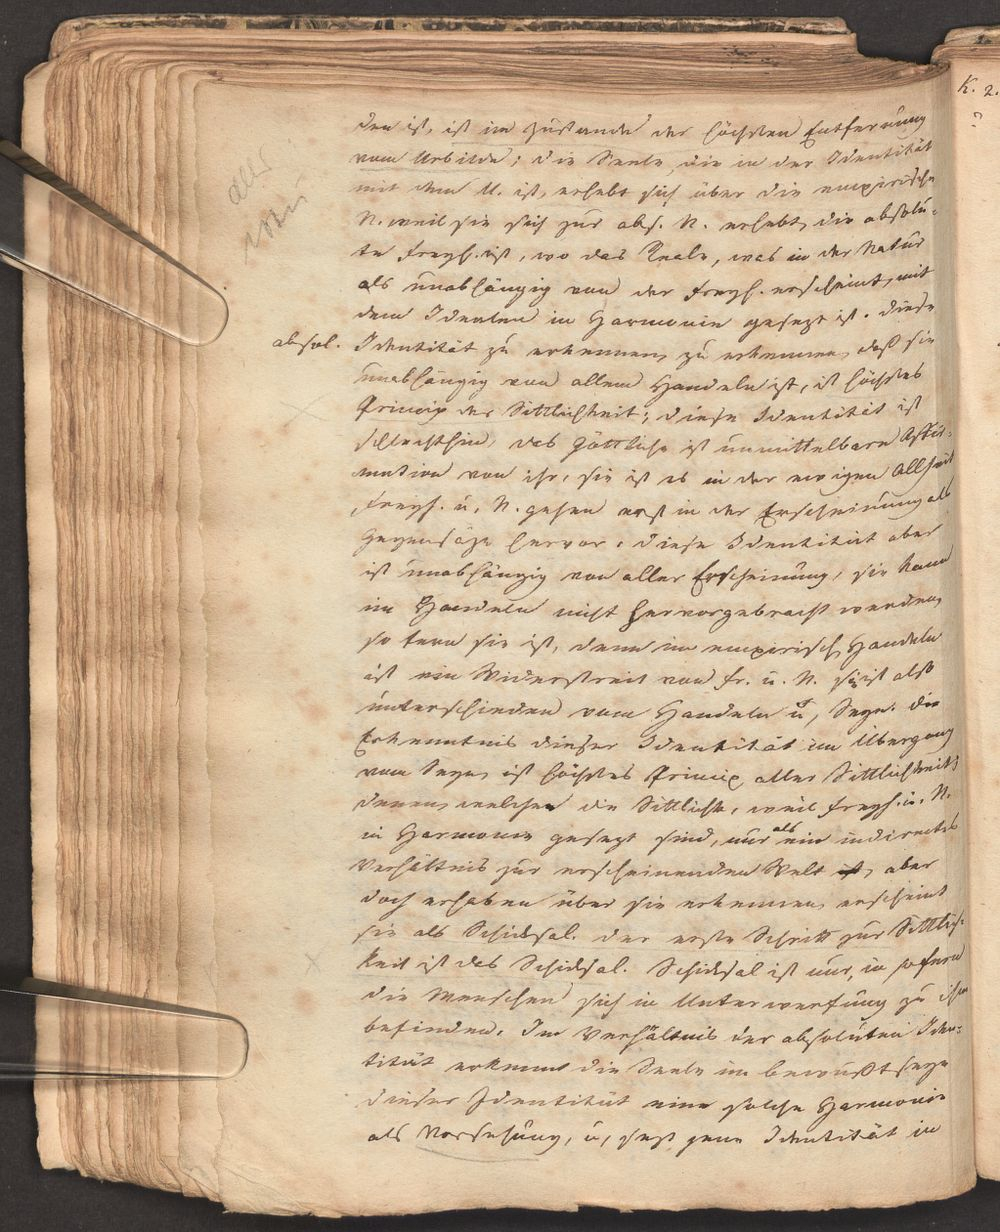 den ist, ist im Zustande der höchsten Entfernung
vom Urbilde; die Seele, die in der Identität
mit dem U. ist, erhebt sich über die empirische
N. weil sie sich zur abs. N. erhebt, die absolu-
te Freyh. ist, wo das Reale, was in der Natur
als unabhängig von der Freyh. erscheint, mit
dem Idealen in Harmonie gesezt ist. Diese
absol. Identität zu erkennen, zu erkennen, daß sie
unabhängig von allem Handeln ist, ist höchstes
Princip der Sittlichkeit; diese Identität ist
schlechthin, das Göttliche ist unmittelbare Affir-
mation von ihr, sie ist es in der ewigen Allheit
Freyh. u. N. gehen erst in der Erscheinung als
Gegensäze hervor. Diese Identität aber
ist unabhängig von aller Erscheinung, sie kann
im Handeln nicht hervorgebracht werden,
so fern sie ist, denn im empirisch. Handeln
ist ein Widerstreit von Fr. u. N. sie ist also
unterschieden vom Handeln u. Seyn. die
Erkenntnis dieser Identität im Übergang
vom Seyn, ist höchstes Princip aller Sittlichkeit,
denen, welchen die Sittlichk. weil Freyh. u. N.
in Harmonie gesezt sind, nur als ein indirectes
Verhältnis zur erscheinenden Welt ist, aber
doch erhaben über sie erkennen, erscheint
sie als Schicksal. Der erste Schritt zur Sittlich-
keit ist das Schicksal. Schicksal ist nur, in sofern
die Menschen sich in Unterwerfung zu ihm
befinden. Im Verhältnis der absoluten Iden-
tität erkennt die Seele im Bewußtseyn
dieser Identität eine solche Harmonie
als Vorsehung, u. sezt jene Identität in
K. 2.